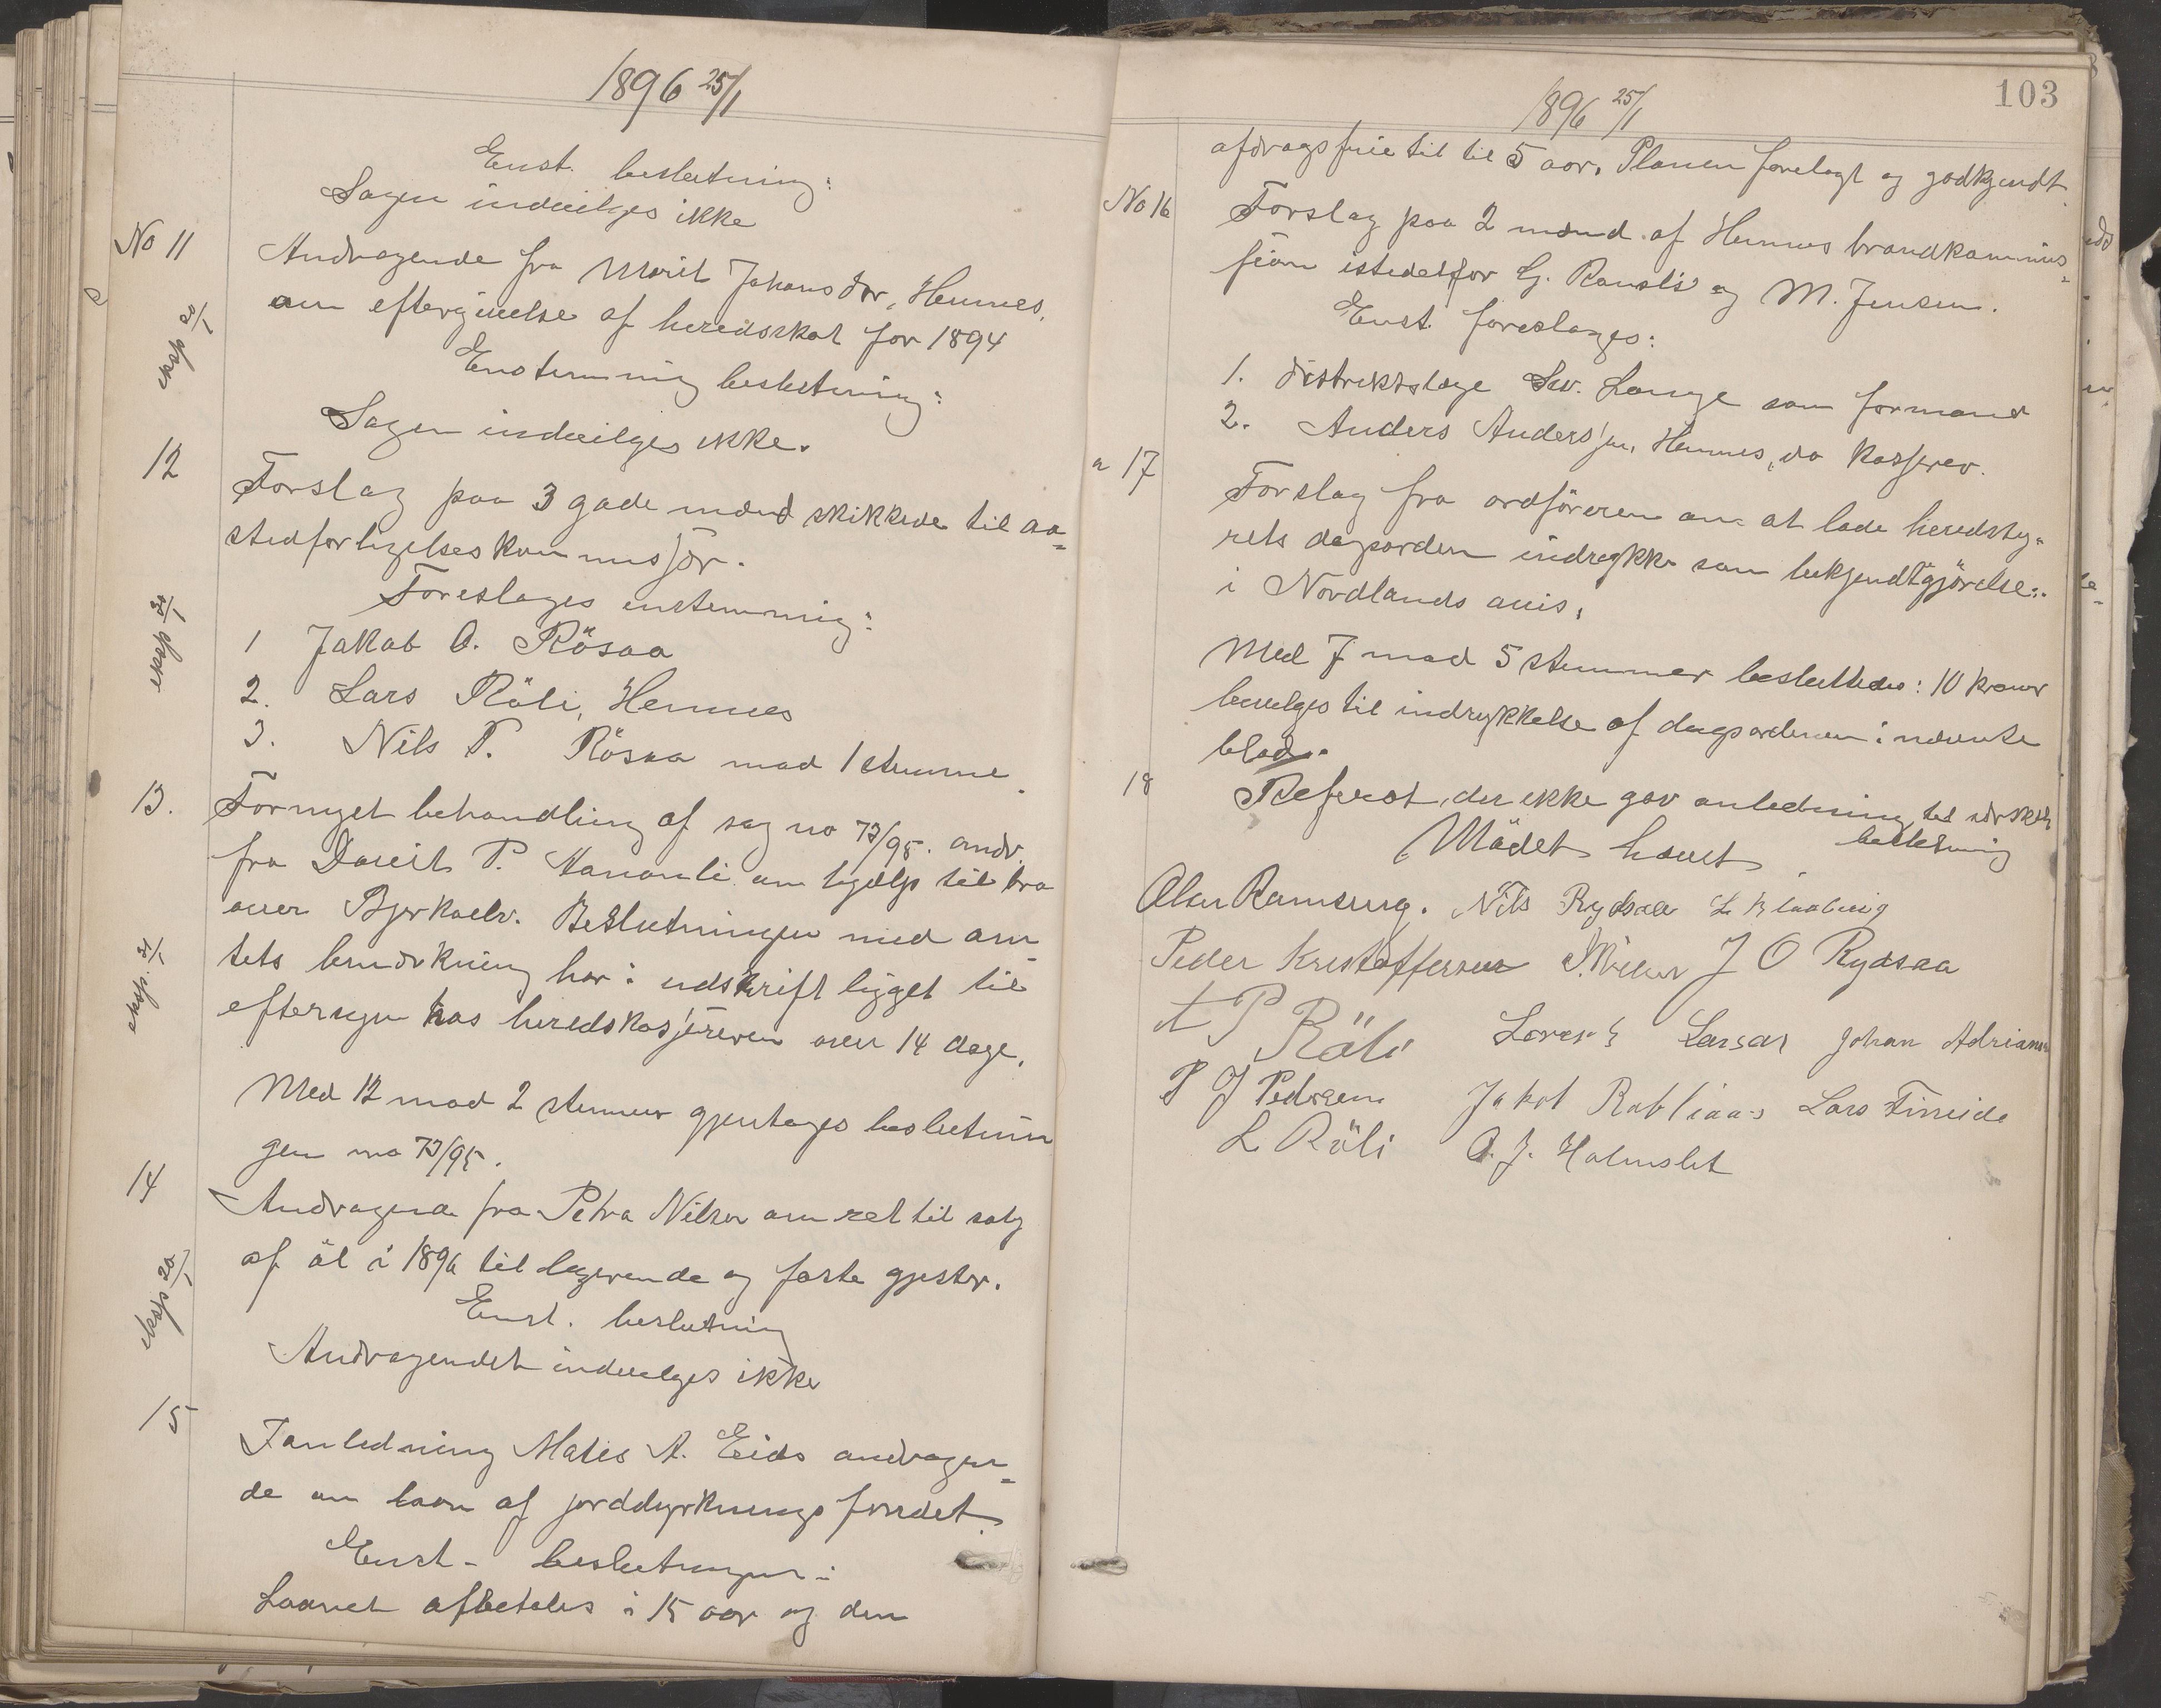 1896 25/1
Enst. beslutning:
Sagen indvilges ikke
No 11
Andragende fra Marit Johansdtr, Hemnes,
om eftergivelse af heredsskat for 1894
eksp 20/1
Enstemmig beslutning:
Sagen indvilges ikke.
12
Forslag paa 3 gode mænd skikkede til aa-
stedforligelseskommisjær.
Foreslages enstemmig:
eksp 30/1
1 Jakob O. Rösaa
2. Lars Röli, Hemnes
3. Nils P. Rösaa mod 1 stemme.
13.
Fornyet behandling af sag no 73/95. andr.
fra David P. om hjælp til bro
over Bjerkaelv. Beslutningen med am-
tets bemærkning har i udskrift ligget til
eksp. 31/1
eftersyn hos heredskasjereren over 14 dage.
Med 12 mod 2 stemmer gjentages beslutnin
gen no 73/95.
14
Andragende fra Petra Nilsen om ret til salg
af öl i 1896 til logerende og faste gjester.
eksp 20/1
Enst. beslutning
Andragendet indvilges ikke
15
I anledning Matis A. Eids andragen-
de om laan af jorddyrkningsfondet.
Enst- beslutningen:
Laanet afbetales i 15 aar og den
103
1896 25/1
afdragsfrie tid til 5 aar. Planen forelagt og godkjendt.
No 16
Forslag paa 2 mænd af Hemnes brandkommis-
sion istedetfor G. Ranoli og M. Jensen.
Enst foreslages:
1. distriktslæge Sev. Lange som formand
2. Anders Andersjen, Hemnes, do kasserer.
" 17
Forslag fra ordföreren om at lade heredsty-
rets dagsorden indrykke som bekjendtgjörelse
i Nordlands avis.
Med 7 mod 5 stemmer besluttedes: 10 kroner
bevilges til indrykkelse af dagsordenen i nævnte
blad.
18
Referat, der ikke gav anledning til særskilt
beslutning
Mödet hævet.
Olav Ramsvig. Nils Rydsaa
Peder Kristoffersen J O Rydsaa
A P Röli Larsen Johan Adriansen
P J Pedersen Jakob Rabliaas Lars Finneide
L Röli O. J. Holmslet